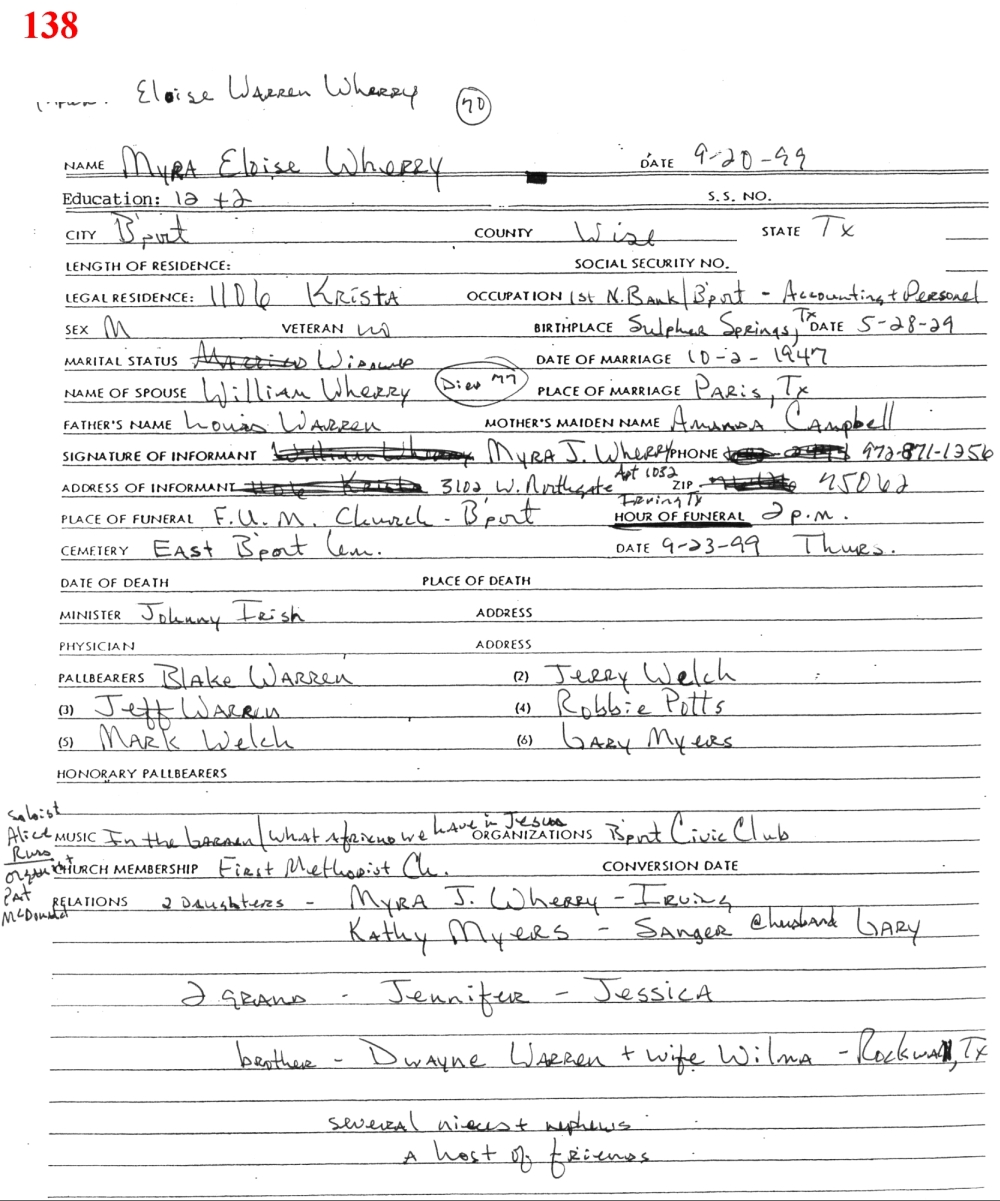 138
Eloise Warren Wherry
70
NAME Myra Eloise Wherry DATE 9-20-99
Education: 12 +2 S.S. NO.
CITY B'port COUNTY Wise STATE Tx
LENGTH OF RESIDENCE: SOCIAL SECURITY NO.
LEGAL RESIDENCE: 1106 Krista OCCUPATION 1st N. Bank/B'port - Accounting + Personel
SEX M VETERAN no BIRTHPLACE Sulpher Springs, Tx DATE 5-28-29
MARITAL STATUS Married Widowed DATE OF MARRIAGE 10-2-1947
NAME OF SPOUSE William Wherry Died 77 PLACE OF MARRIAGE Paris, Tx
FATHER'S NAME Louis Warren MOTHER'S MAIDEN NAME Amanda Campbell
SIGNATURE OF INFORMANT William Wherry Myra J. Wherry PHONE 972-871-1256
ADDRESS OF INFORMANT Krista 3102 W. Northgate Apt 1032 Irving Tx ZIP 75062
PLACE OF FUNERAL F.U.M. Church - B'port HOUR OF FUNERAL 2 p.m.
CEMETERY East B'port Cem. DATE 9-23-99 Thurs.
DATE OF DEATH PLACE OF DEATH
MINISTER Johnny Irish ADDRESS
PHYSICIAN ADDRESS
PALLBEARERS Blake Warren (2) Jerry Welch
(3) Jeff Warren (4) Robbie Potts
(5) Mark Welch (6) Gary Myers
HONORARY PALLBEARERS
Soloist
Alice
Russ
organist
Pat
McDonald
MUSIC In the Garden/What a friend we have in Jesus ORGANIZATIONS B'port Civic Club
CHURCH MEMBERSHIP First Methodist Ch. CONVERSION DATE
RELATIONS 2 Daughters - Myra J. Wherry - Irving
Kathy Myers - Sanger @husband Gary
2 grand - Jennifer - Jessica
brother - Dwayne Warren + wife Wilma - Rockwall, Tx
several nieces + nephews
A host of friends